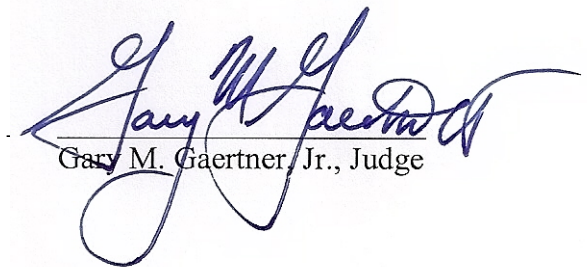 Gary M Gaertner
Gary M. Gaertner, Jr., Judge